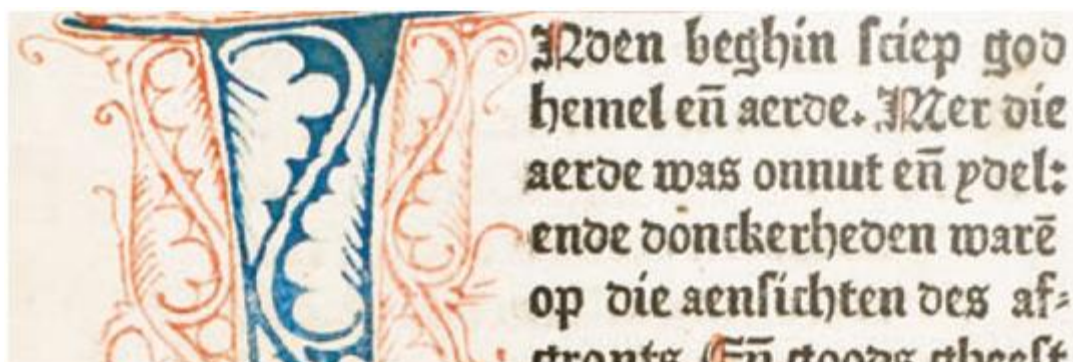 INden beghin sciep god
hemel en̄ aerde. Mer die
aerde was onnut en̄ ydel:
ende donckerheden warē
op die aensichten des af⸗
gronts. En̄ goods gheest